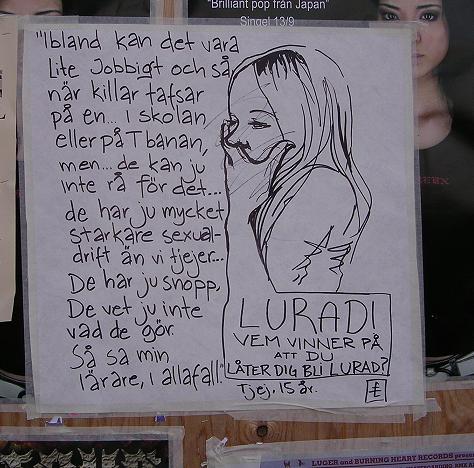 "Brilliant pop från Japan"
Singel 13/9
"Ibland kan det vara
Lite Jobbigt och så,
när killar tafsar
på en... I skolan
eller på T banan,
men... de kan ju
inte rå för det...
de har ju mycket
starkare sexual-
drift än vi tjejer...
De har ju snopp,
De vet ju inte
vad de gör.
Så sa min
lärare, i allafall."
LURAD!
VEM VINNER PÅ
ATT DU
LÅTER DIG BLI LURAD?
Tjej, 15 år.
LUGER and BURNING HEART RECORDS